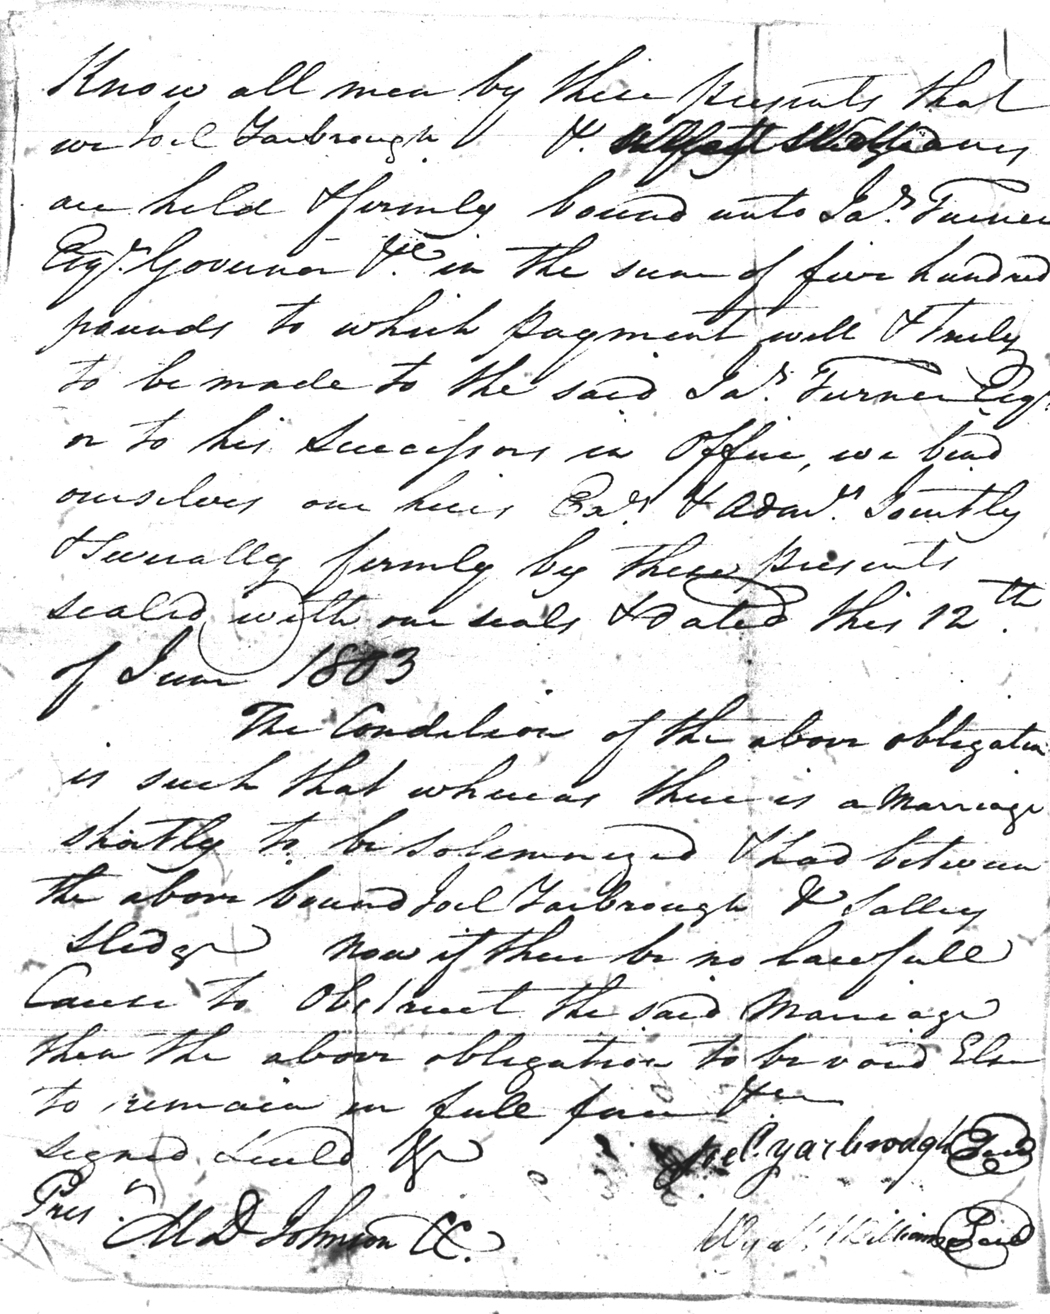 Know all men by these presents that
we Joel Yarbrough &
are held & firmly bound unto Jas. Turner
Esqr. Governor &c in the sum of five hundred
pounds to which payment well & Truly
to be made to the said Jas. Turner Esqr.
or to his Successors in Office, we bind
ourselves our heirs Exs. & Admrs. Jointly
& severally firmly by these presents
sealed with our seals & Dated this 12th.
of June 1803
The Condition of the above obligation
is such that whereas there is a Marriage
shortly to be solemnized & had between
the above bound Joel Yarbrough & Salley
Sledge Now if there be no lawfull
Cause to Obstruct the said Marriage
then the above obligation to be void Else
to remain in full force &c
signed Seald &c
Joel Yarbrough Seal
Pres.
M D Johnson CC.
Williams Seal